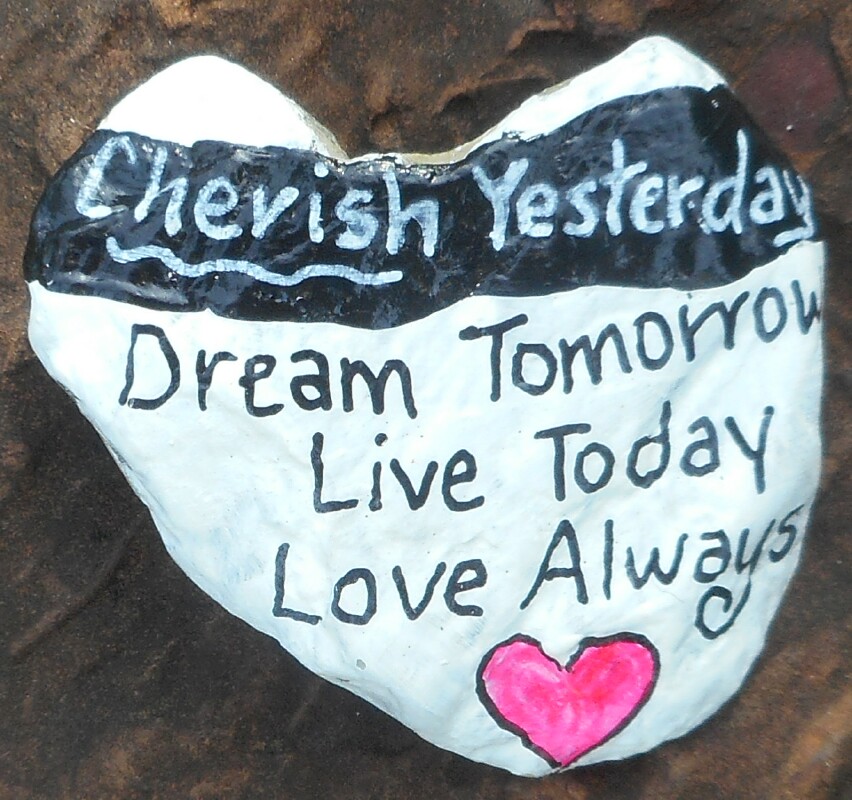 Cherish Yesterday
Dream Tomorrow
Live Today
Love Always